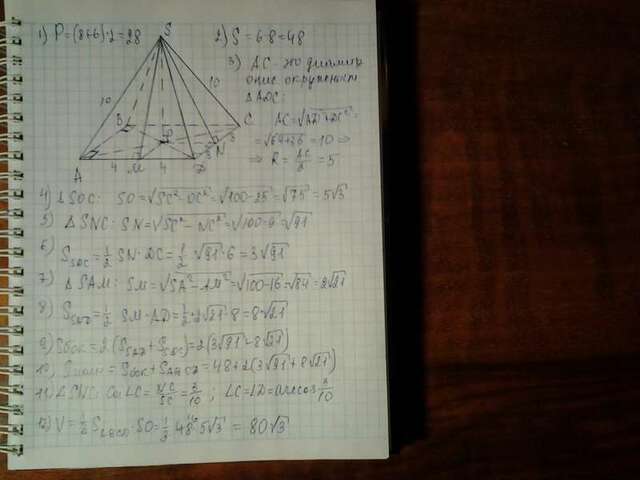 1) P=(8+6)·2=28
2) S=6·8=48
3) AC - это диаметр
опис окружности
ΔADC:
AC=√AD²+DC²=
=√64+36=10 ⇒
⇒ R=AC/2=5
S
10
10
B
C
A
4
M
4
D
3
N
3
4) ΔSOC: SO=√SC²-OC²=√100-25=√75=5√3
5) ΔSNC: SN=√SC²-NC²=√100-9=√91
6) S_SDC=1/2 SN·DC=1/2·√91·6=3√91
7) ΔSAM: SM=√SA²-AM²=√100-16=√84=2√21
8) S_SAD=1/2 SM·AD=1/2·2√21·8=8√21
9) Sбок=2(S_SAD+S_SDC)=2(3√91+8√21)
10) Sполн=Sбок+S_ABCD=48+2(3√91+8√21)
11) ΔSNC: Cos∠C=NC/SC=3/10; ∠C=∠D=arccos 3/10
12) V=1/3 S_ABCD·SO=1/3 48·5√3=80√3